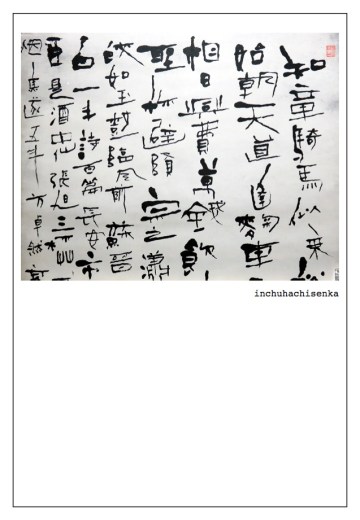 知章騎馬似乘船
始朝天道逢麴車
相日興費萬錢飲
聖稱避賢宗之瀟
皎如玉樹臨風前蘇晉
白一斗詩百篇長安市
臣是酒中仙張旭三杯草
烟焦遂五斗方卓然高
inchuhachisenka